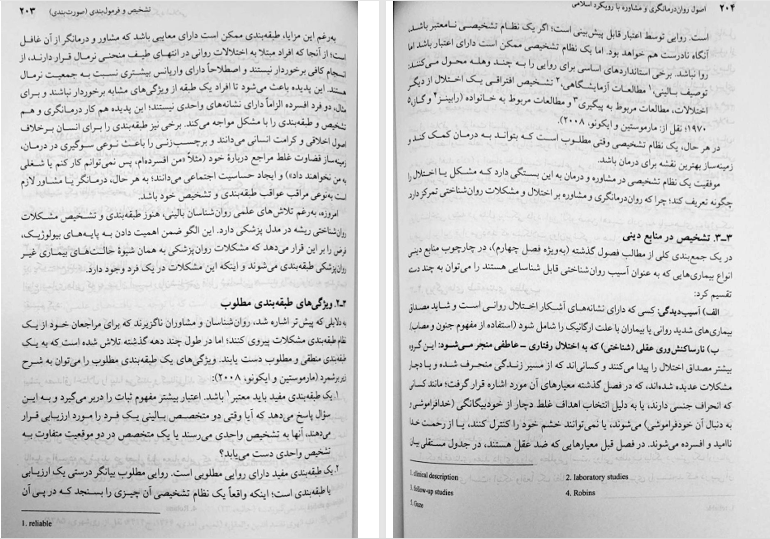 تشخیص و فرمول‌بندی (صورت‌بندی) ۲۰۳
به‌رغم این مزایا، طبقه‌بندی ممکن است دارای معایبی باشد که مشاور و درمانگر از آن غافل
است؛ از آنجا که افراد مبتلا به اختلالات روانی در انتهای طیف منحنی نرمال قرار دارند، از
انسجام کافی برخوردار نیستند و اصطلاحاً دارای واریانس بیشتری نسبت به جمعیت نرمال
هستند. این پدیده باعث می‌شود تا افراد یک طبقه از ویژگی‌های مشابه برخوردار نباشند و برای
مثال، دو فرد افسرده الزاماً دارای نشانه‌های واحدی نیستند؛ این پدیده هم کار درمانگری و هم
تشخیص و طبقه‌بندی را با مشکل مواجه می‌کند. برخی نیز طبقه‌بندی را برای انسان برخلاف
اصول اخلاقی و کرامت انسانی می‌دانند و برچسب‌زنی را باعث نوعی سوگیری در درمان،
زمینه‌ساز قضاوت غلط مراجع دربارهٔ خود (مثلاً «من افسرده‌ام، پس نمی‌توانم کار کنم یا شغلی
به من نخواهند داد») و ایجاد حساسیت اجتماعی می‌دانند؛ به هر حال، درمانگر یا مشاور لازم
است به‌نوعی مراقب عواقب طبقه‌بندی و تشخیص خود باشد.
امروزه، به‌رغم تلاش‌های علمی روان‌شناسان بالینی، هنوز طبقه‌بندی و تشخیص مشکلات
روان‌شناختی ریشه در مدل پزشکی دارد. این الگو ضمن اهمیت دادن به پایه‌های بیولوژیک،
فرض را بر این قرار می‌دهد که مشکلات روان‌پزشکی به همان شیوهٔ حالت‌های بیماری غیر
روان‌پزشکی طبقه‌بندی می‌شوند و اینکه این مشکلات در یک فرد وجود دارد.
۲ـ۲. ویژگی‌های طبقه‌بندی مطلوب
به دلایلی که پیش‌تر اشاره شد، روان‌شناسان و مشاوران ناگزیرند که برای مراجعان خود از یک
نظام طبقه‌بندی مشکلات پیروی کنند؛ اما در طول چند دهه گذشته تلاش شده است که به یک
طبقه‌بندی منطقی و مطلوب دست یابند. ویژگی‌های یک طبقه‌بندی مطلوب را می‌توان به شرح
زیر برشمرد (مارموستین و ایکونو، ۲۰۰۸):
۱. یک طبقه‌بندی مفید باید معتبر۱ باشد. اعتبار بیشتر مفهوم ثبات را دربر می‌گیرد و به این
سؤال پاسخ می‌دهد که آیا وقتی دو متخصص بالینی یک فرد را مورد ارزیابی قرار
می‌دهند، آنها به تشخیص واحدی می‌رسند یا یک متخصص در دو موقعیت متفاوت به
تشخیص واحدی دست می‌یابد؟
۲. یک طبقه‌بندی مفید دارای روایی مطلوبی است. روایی مطلوب بیانگر درستی یک ارزیابی
یا طبقه‌بندی است؛ اینکه واقعاً یک نظام تشخیصی آن چیزی را بسنجد که در پی آن
1. reliable
۲۰۴ اصول روان‌درمانگری و مشاوره با رویکرد اسلامی
است. روایی توسط اعتبار قابل پیش‌بینی است؛ اگر یک نظام تشخیصی نامعتبر باشد،
آنگاه نادرست هم خواهد بود. اما یک نظام تشخیصی ممکن است دارای اعتبار باشد اما
روا نباشد. برخی استانداردهای اساسی برای روایی را به چند وهله محول می‌کنند:
توصیف بالینی،۱ مطالعات آزمایشگاهی،۲ تشخیص افتراقی یک اختلال از دیگر
اختلالات، مطالعات مربوط به پیگیری۳ و مطالعات مربوط به خانواده (رابینز۴ و گاز،۵
۱۹۷۰؛ نقل از: مارموستین و ایکونو، ۲۰۰۸).
در هر حال، یک نظام تشخیصی وقتی مطلوب است که بتواند به درمان کمک کند و
زمینه‌ساز بهترین نقشه برای درمان باشد.
موفقیت یک نظام تشخیصی در مشاوره و درمان به این بستگی دارد که مشکل یا اختلال را
چگونه تعریف کند؛ چرا که روان‌درمانگری و مشاوره بر اختلال و مشکلات روان‌شناختی تمرکز دارد
۳ـ۳. تشخیص در منابع دینی
در یک جمع‌بندی کلی از مطالب فصول گذشته (به‌ویژه فصل چهارم)، در چارچوب منابع دینی
انواع بیماری‌هایی که به عنوان آسیب روان‌شناختی قابل شناسایی هستند را می‌توان به چند دست
تقسیم کرد:
الف) آسیب‌دیدگی: کسی که دارای نشانه‌های آشکار اختلال روانی است و شاید مصداق
بیماری‌های شدید روانی یا بیماران با علت ارگانیک را شامل شود (استفاده از مفهوم جنون و مصاب)
ب) نارساکنش‌وری عقلی (شناختی) که به اختلال رفتاری ـ عاطفی منجر می‌شود: این گروه
بیشتر مصداق اختلال را پیدا می‌کنند و کسانی‌اند که از مسیر زندگی منحرف شده و یا دچار
مشکلات عدیده شده‌اند، که در فصل گذشته معیارهای آن مورد اشاره قرار گرفت؛ مانند کسانی
که انحراف جنسی دارند، یا به دلیل انتخاب اهداف غلط دچار از خودبیگانگی (خدافراموشی و
به دنبال آن خودفراموشی) می‌شوند، یا نمی‌توانند خشم خود را کنترل کنند، یا از رحمت خدا
ناامید و افسرده می‌شوند. در فصل قبل معیارهایی که ضد عقل هستند، در جدول مستقلی بیان
1. clinical description 2. laboratory studies
3. follow-up studies 4. Robins
5. Guze